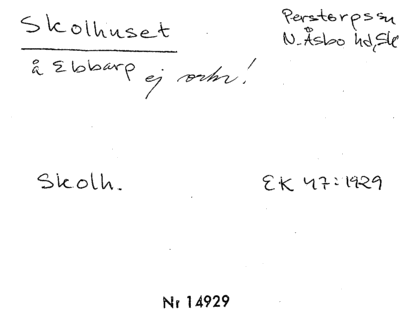 Skolhuset
Perstorps sn
N. Åsbo hd, Sk
å Ebbarp ej ortn!
Skolh.
EK 47:1929
Nr 14929